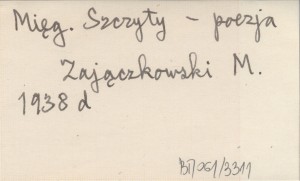 Mięg. Szczyty - poezja
Zajączkowski M.
1938 d
BP/061/3311